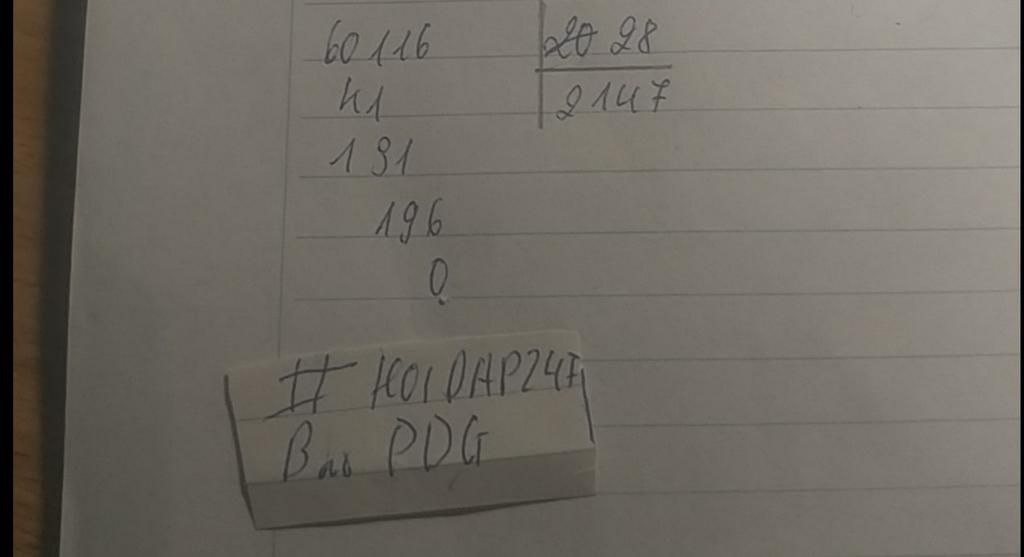 60116 20 28
41 2147
131
196
0
# HOIDAP247
Bao PDG